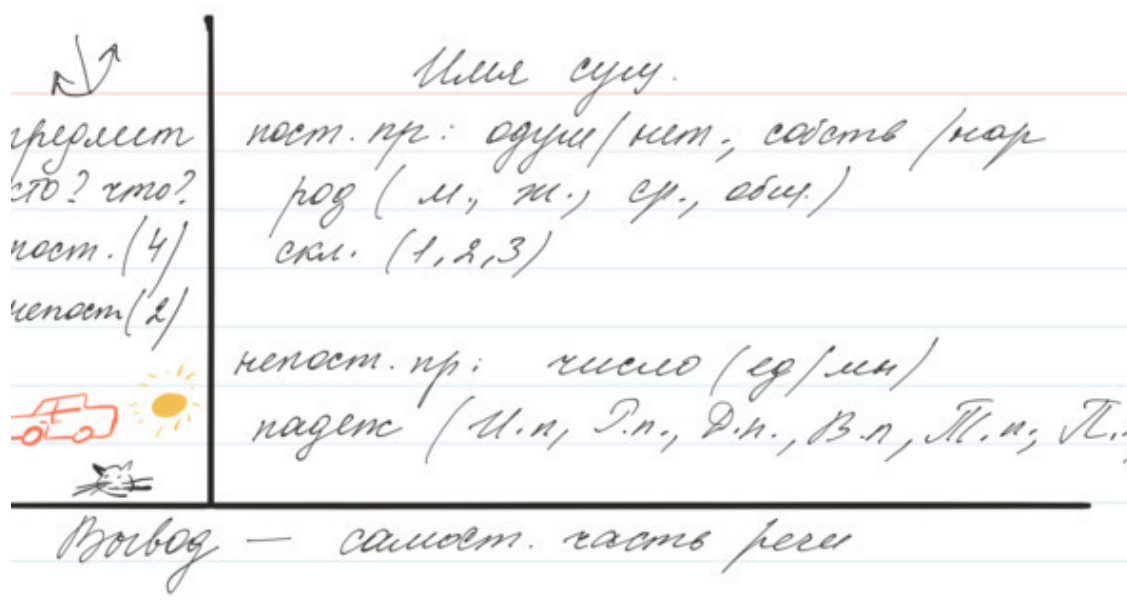 Имя сущ.
предмет
кто? что?
пост. (4)
непост (2)
пост. пр: одуш/нет., собств/нар
род ( м., ж., ср., общ.)
скл. (1, 2, 3)
непост. пр: число (ед/мн)
падеж (И.п, Р.п., Д.п., В.п, Т.п, П.
Вывод — самост. часть речи